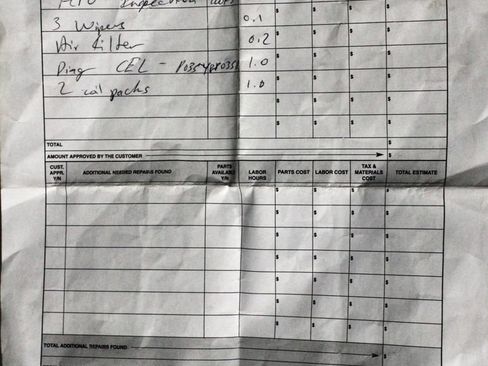 Inspection
3 Wipers 0.1
Air Filter 0.2
Diag CEL - P0354/P0355 1.0
2 coil packs 1.0
TOTAL $
AMOUNT APPROVED BY THE CUSTOMER $
CUST. APPR. Y/N ADDITIONAL NEEDED REPAIRS FOUND PARTS AVAILABLE Y/N LABOR HOURS PARTS COST LABOR COST TAX & MATERIALS COST TOTAL ESTIMATE
$ $ $ $
$ $ $ $
$ $ $ $
$ $ $ $
$ $ $ $
$ $ $ $
$ $ $ $
$ $ $ $
TOTAL ADDITIONAL REPAIRS FOUND $